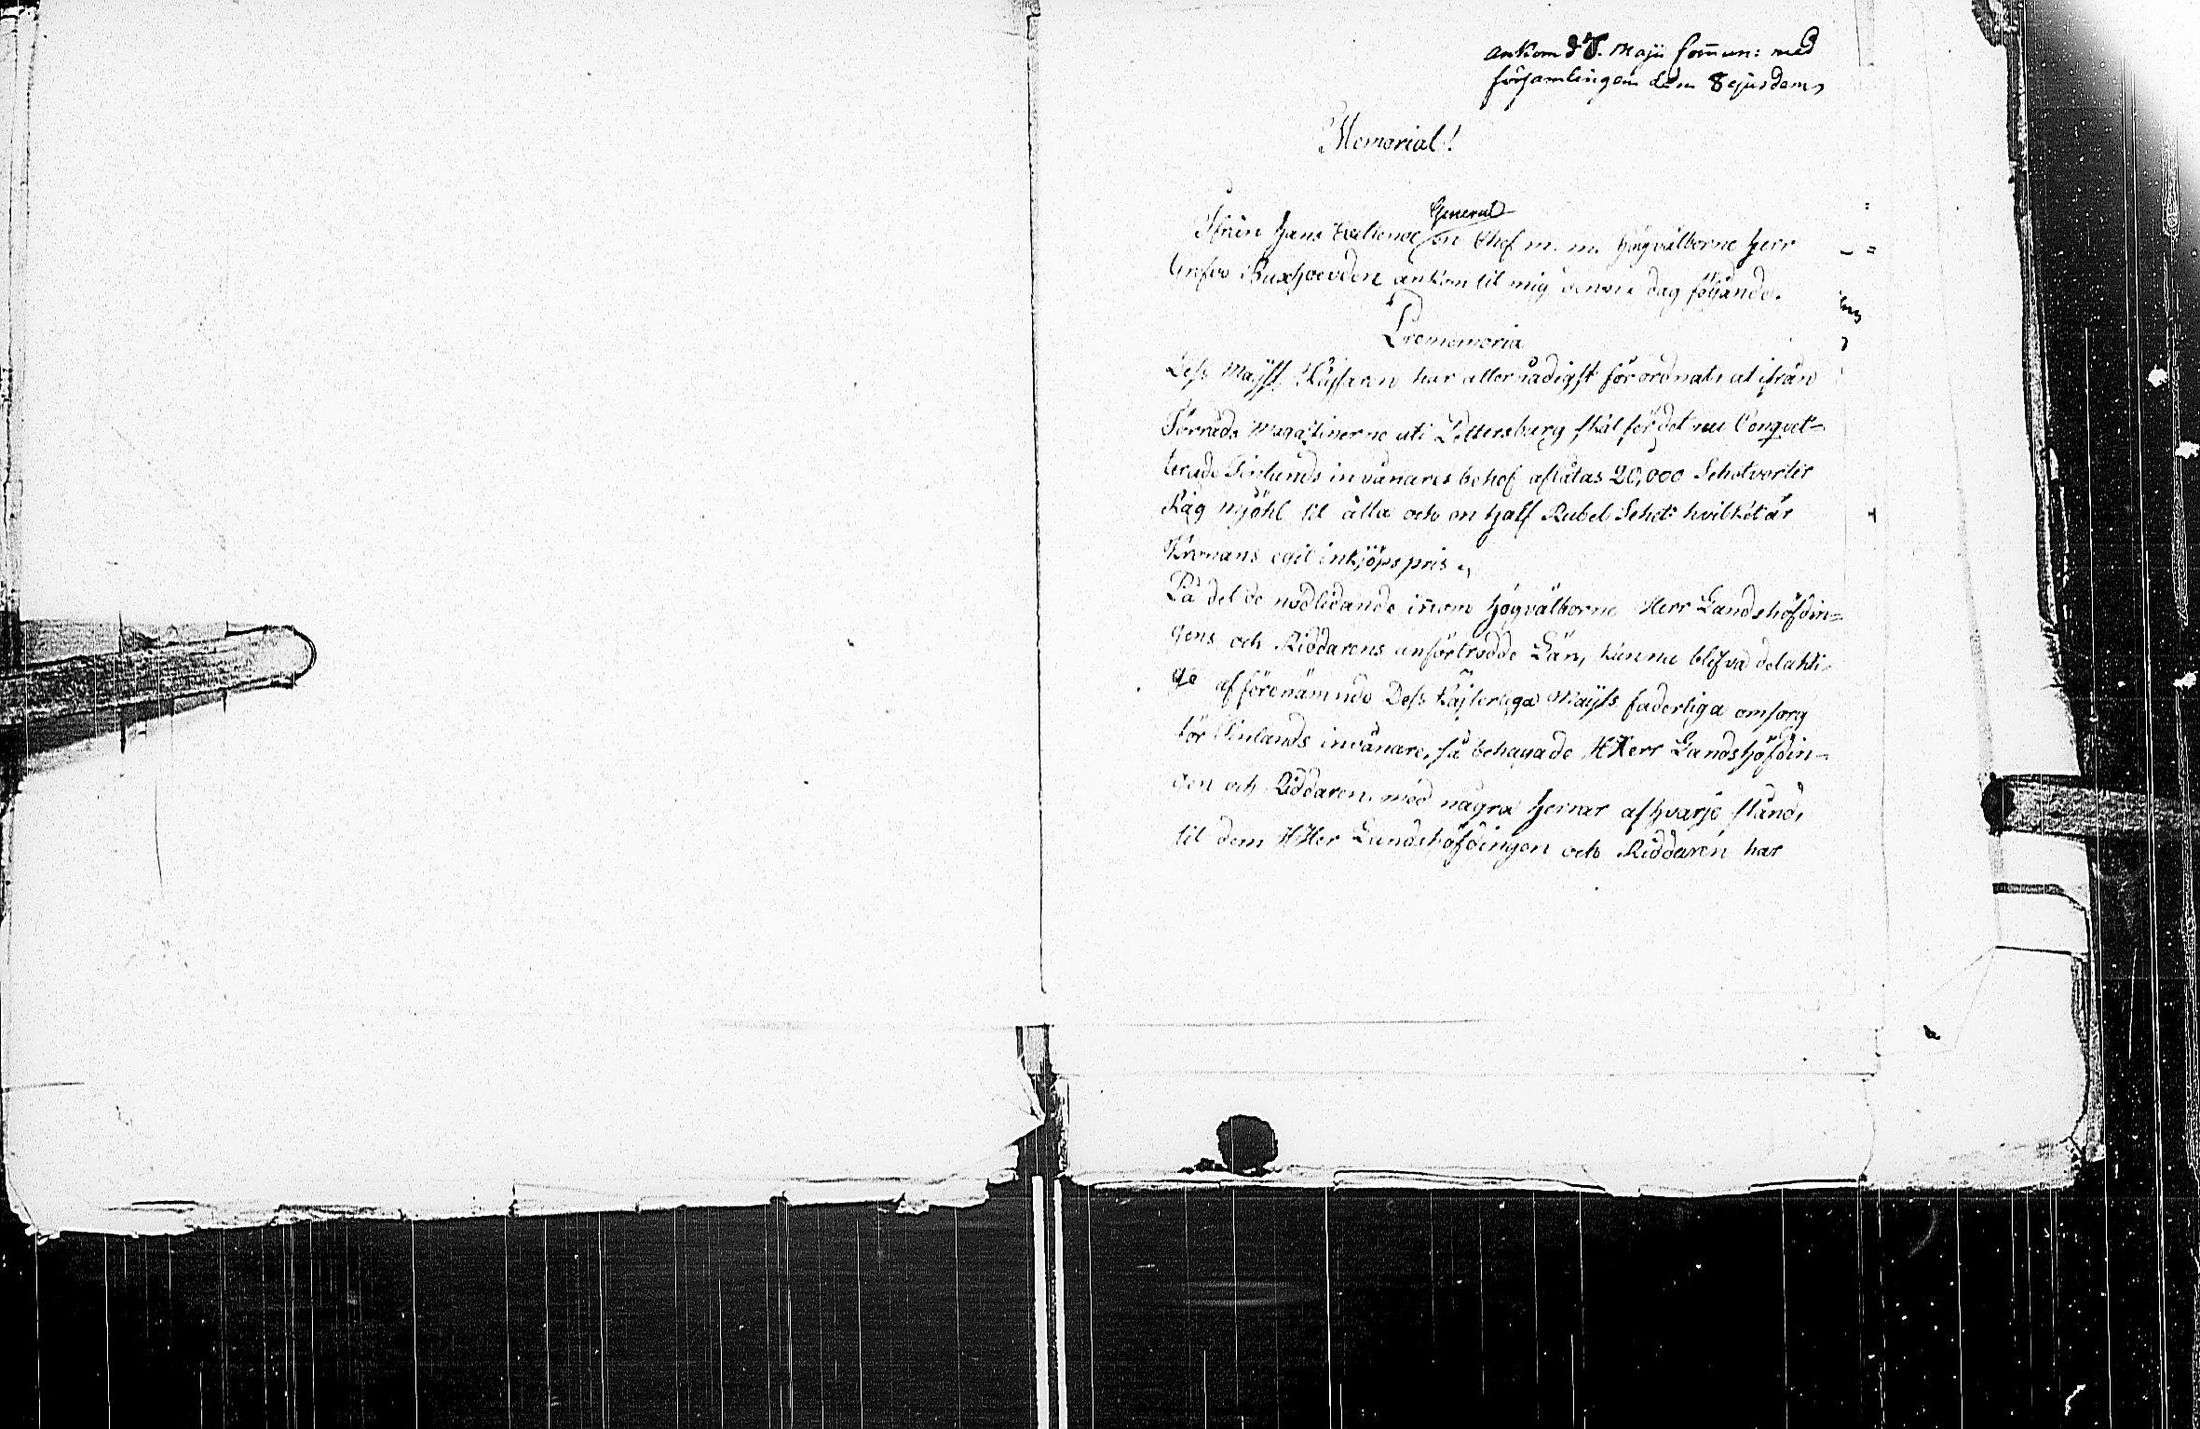 Ankom d 8. Maji com̄un: med
församlingen den 8 ejusdem
Memorial!
General
Ifrån Hans Excellence en Chef m. m. Högvälborne Herr
Grefve Buxhoevden ankom til mig denna dag följande.
Promemoria
Dess Maÿst Kejsaren har allernådigst förordnat, at ifrån
Förråds Magazinerne uti Pettersburg skal för det nu Conqvet-
terade Finlands invånares behof aflåtas 20,000 Schetverter
Råg mjöhl til åtta och en half Rubel Schet: hvilket är
Kronans egit inkjöpspris.
På det de nödlidande innom Högvälborne Herr Landshöfdin-
gens och Riddarens anförtrodde Län, kunna blifva delakti-
ge af förenämnde Dess Kejserliga Maÿts faderliga omsorg
för Finlands invånare, så behagade HHerr Landshöfdin-
gen och Riddaren med några Herrar af hvarje stånd,
til dem HHer Landshöfdingen och Riddaren har